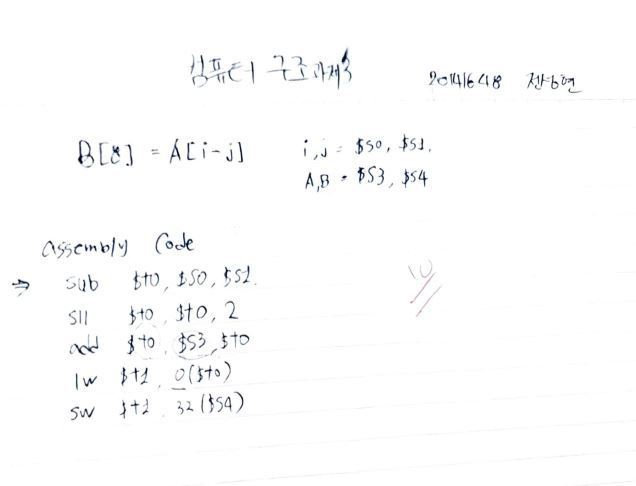 컴퓨터 구조 과제3
20141648
B[8] = A[i-j]
i,j = $S0, $S1.
A,B = $S3, $S4
assembly Code
⇒ sub $t0, $S0, $S1.
sll $t0, $t0, 2
add $t0, $S3, $t0
lw $t1, 0($t0)
sw $t1, 32($S4)
10